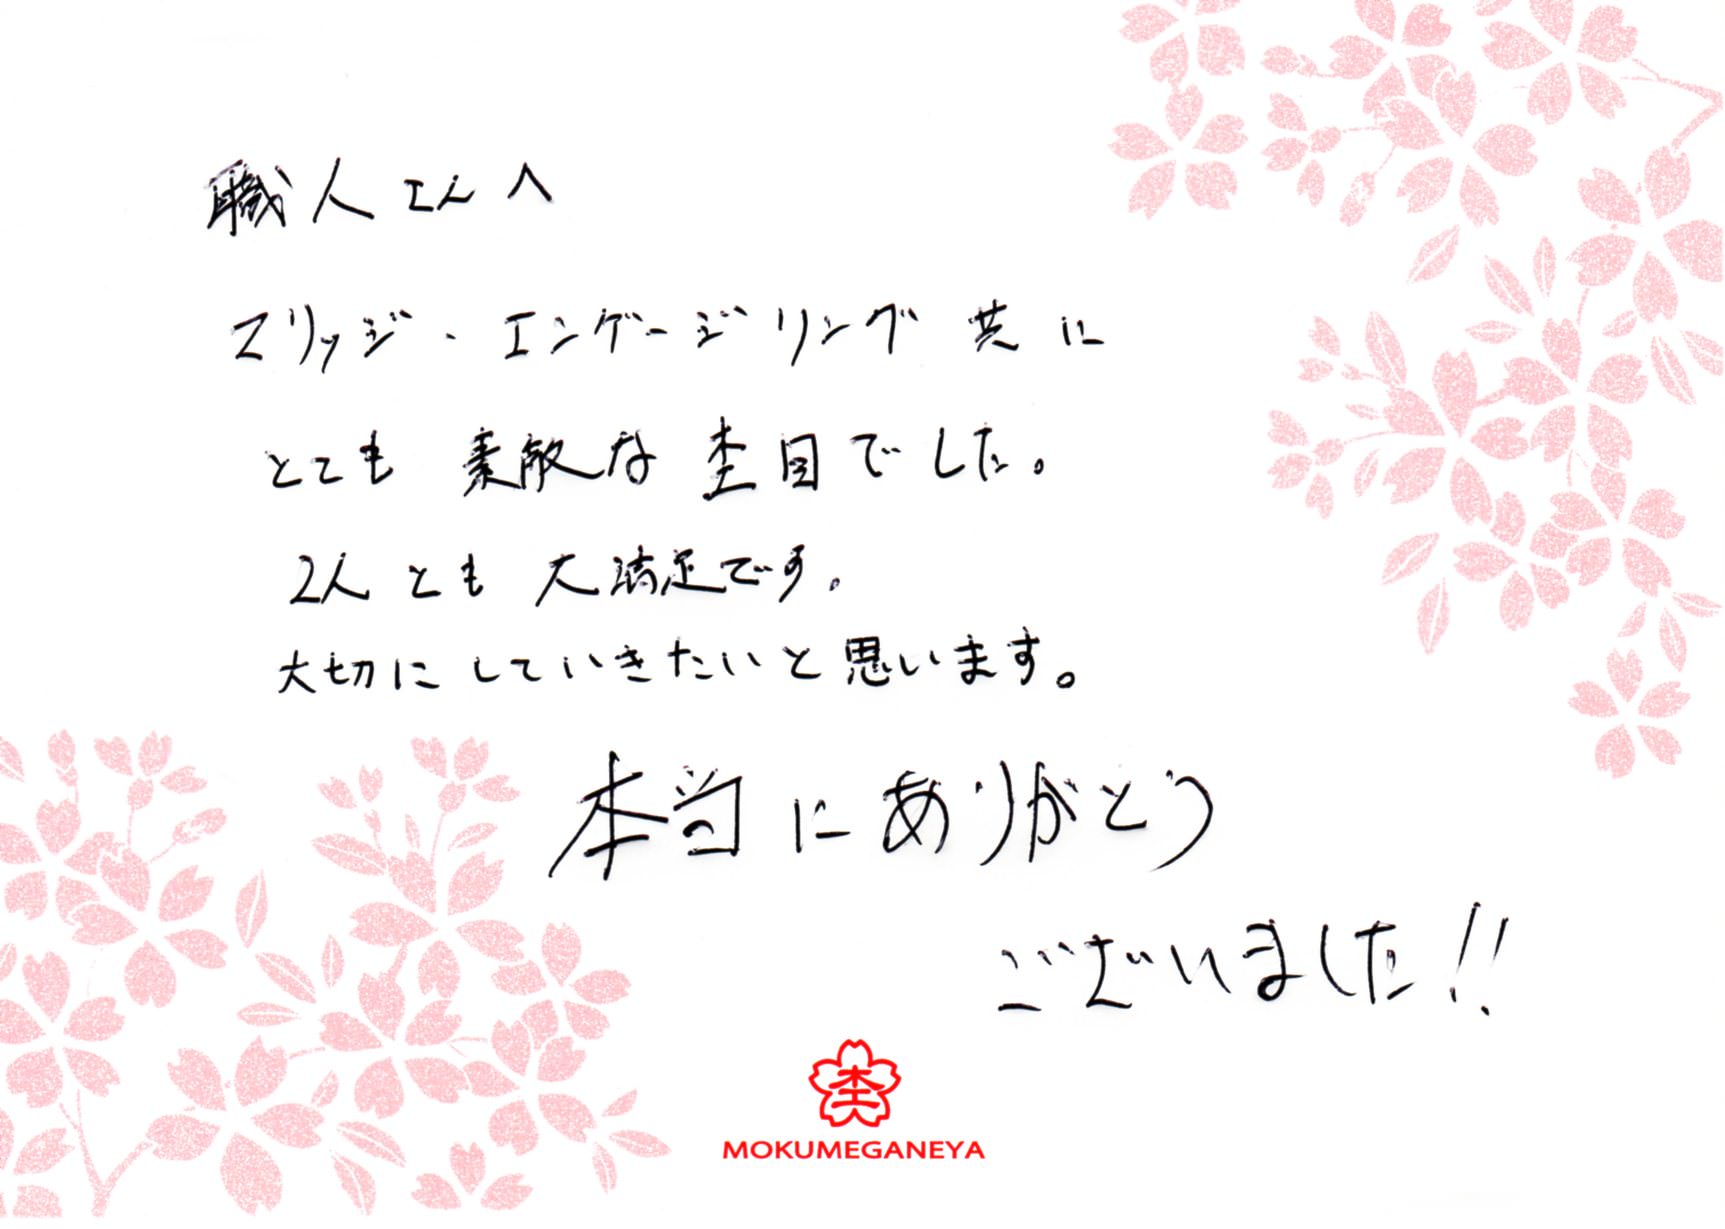 職人さんへ
マリッジ・エンゲージリング 共に
とても 素敵な 杢目でした。
2人とも 大満足です。
大切にしていきたいと思います。
本当にありがとう
ございました!!
杢
MOKUMEGANEYA